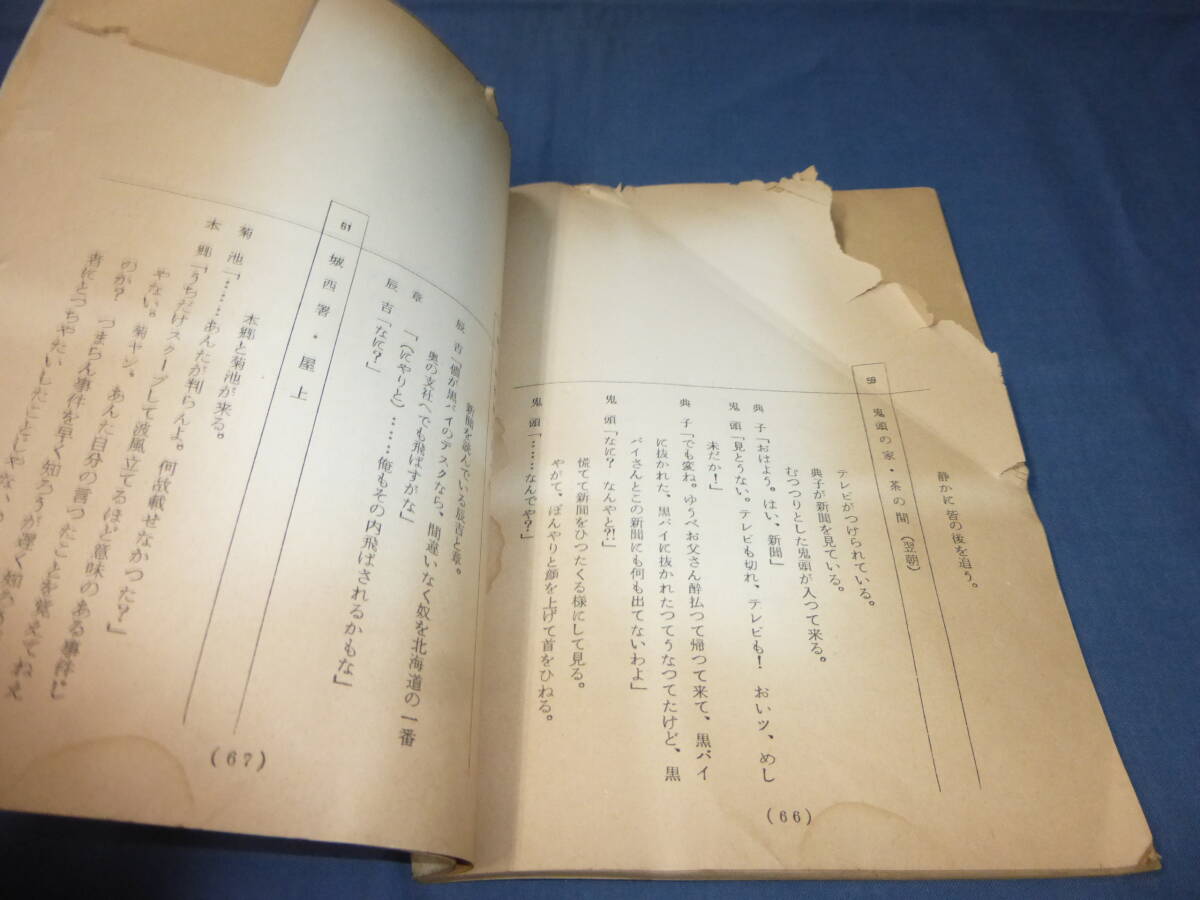 静かに皆の後を追う。
59 鬼頭の家・茶の間(翌朝)
テレビがつけられている。
典子が新聞を見ている。
むつつりとした鬼頭が入つて来る。
典子「おはよう。はい、新聞」
鬼頭「見とうない。テレビも切れ、テレビも! おいッ、めし
未だか!」
典子「でも変ね。ゆうべお父さん酔払つて帰つて来て、黒バイ
に抜かれた、黒バイに抜かれたつてうなつてたけど、黒
バイさんとこの新聞にも何も出てないわよ」
鬼頭「なに? なんやと?!」
慌てて新聞をひつたくる様にして見る。
やがて、ぼんやりと顔を上げて首をひねる。
鬼頭「……なんでや?」
(66)
新聞を読んでいる辰吉と章。
辰吉「俺が黒バイのデスクなら、間違いなく奴を北海道の一番
奥の支社へでも飛ばすがな」
章「(にやりと)……俺もその内飛ばされるかもな」
辰吉「なに?」
61 城西署・屋上
本郷と菊池が来る。
菊池「……あんたが判らんよ。何故載せなかつた?」
本郷「うちだけスクープして波風立てるほど意味のある事件じ
やない。菊ヤン。あんた自分の言つたことを覚えてねえ
のか? つまらん事件を早く知ろうが遅く知
者にとつちやたいしたことじやない
(67)